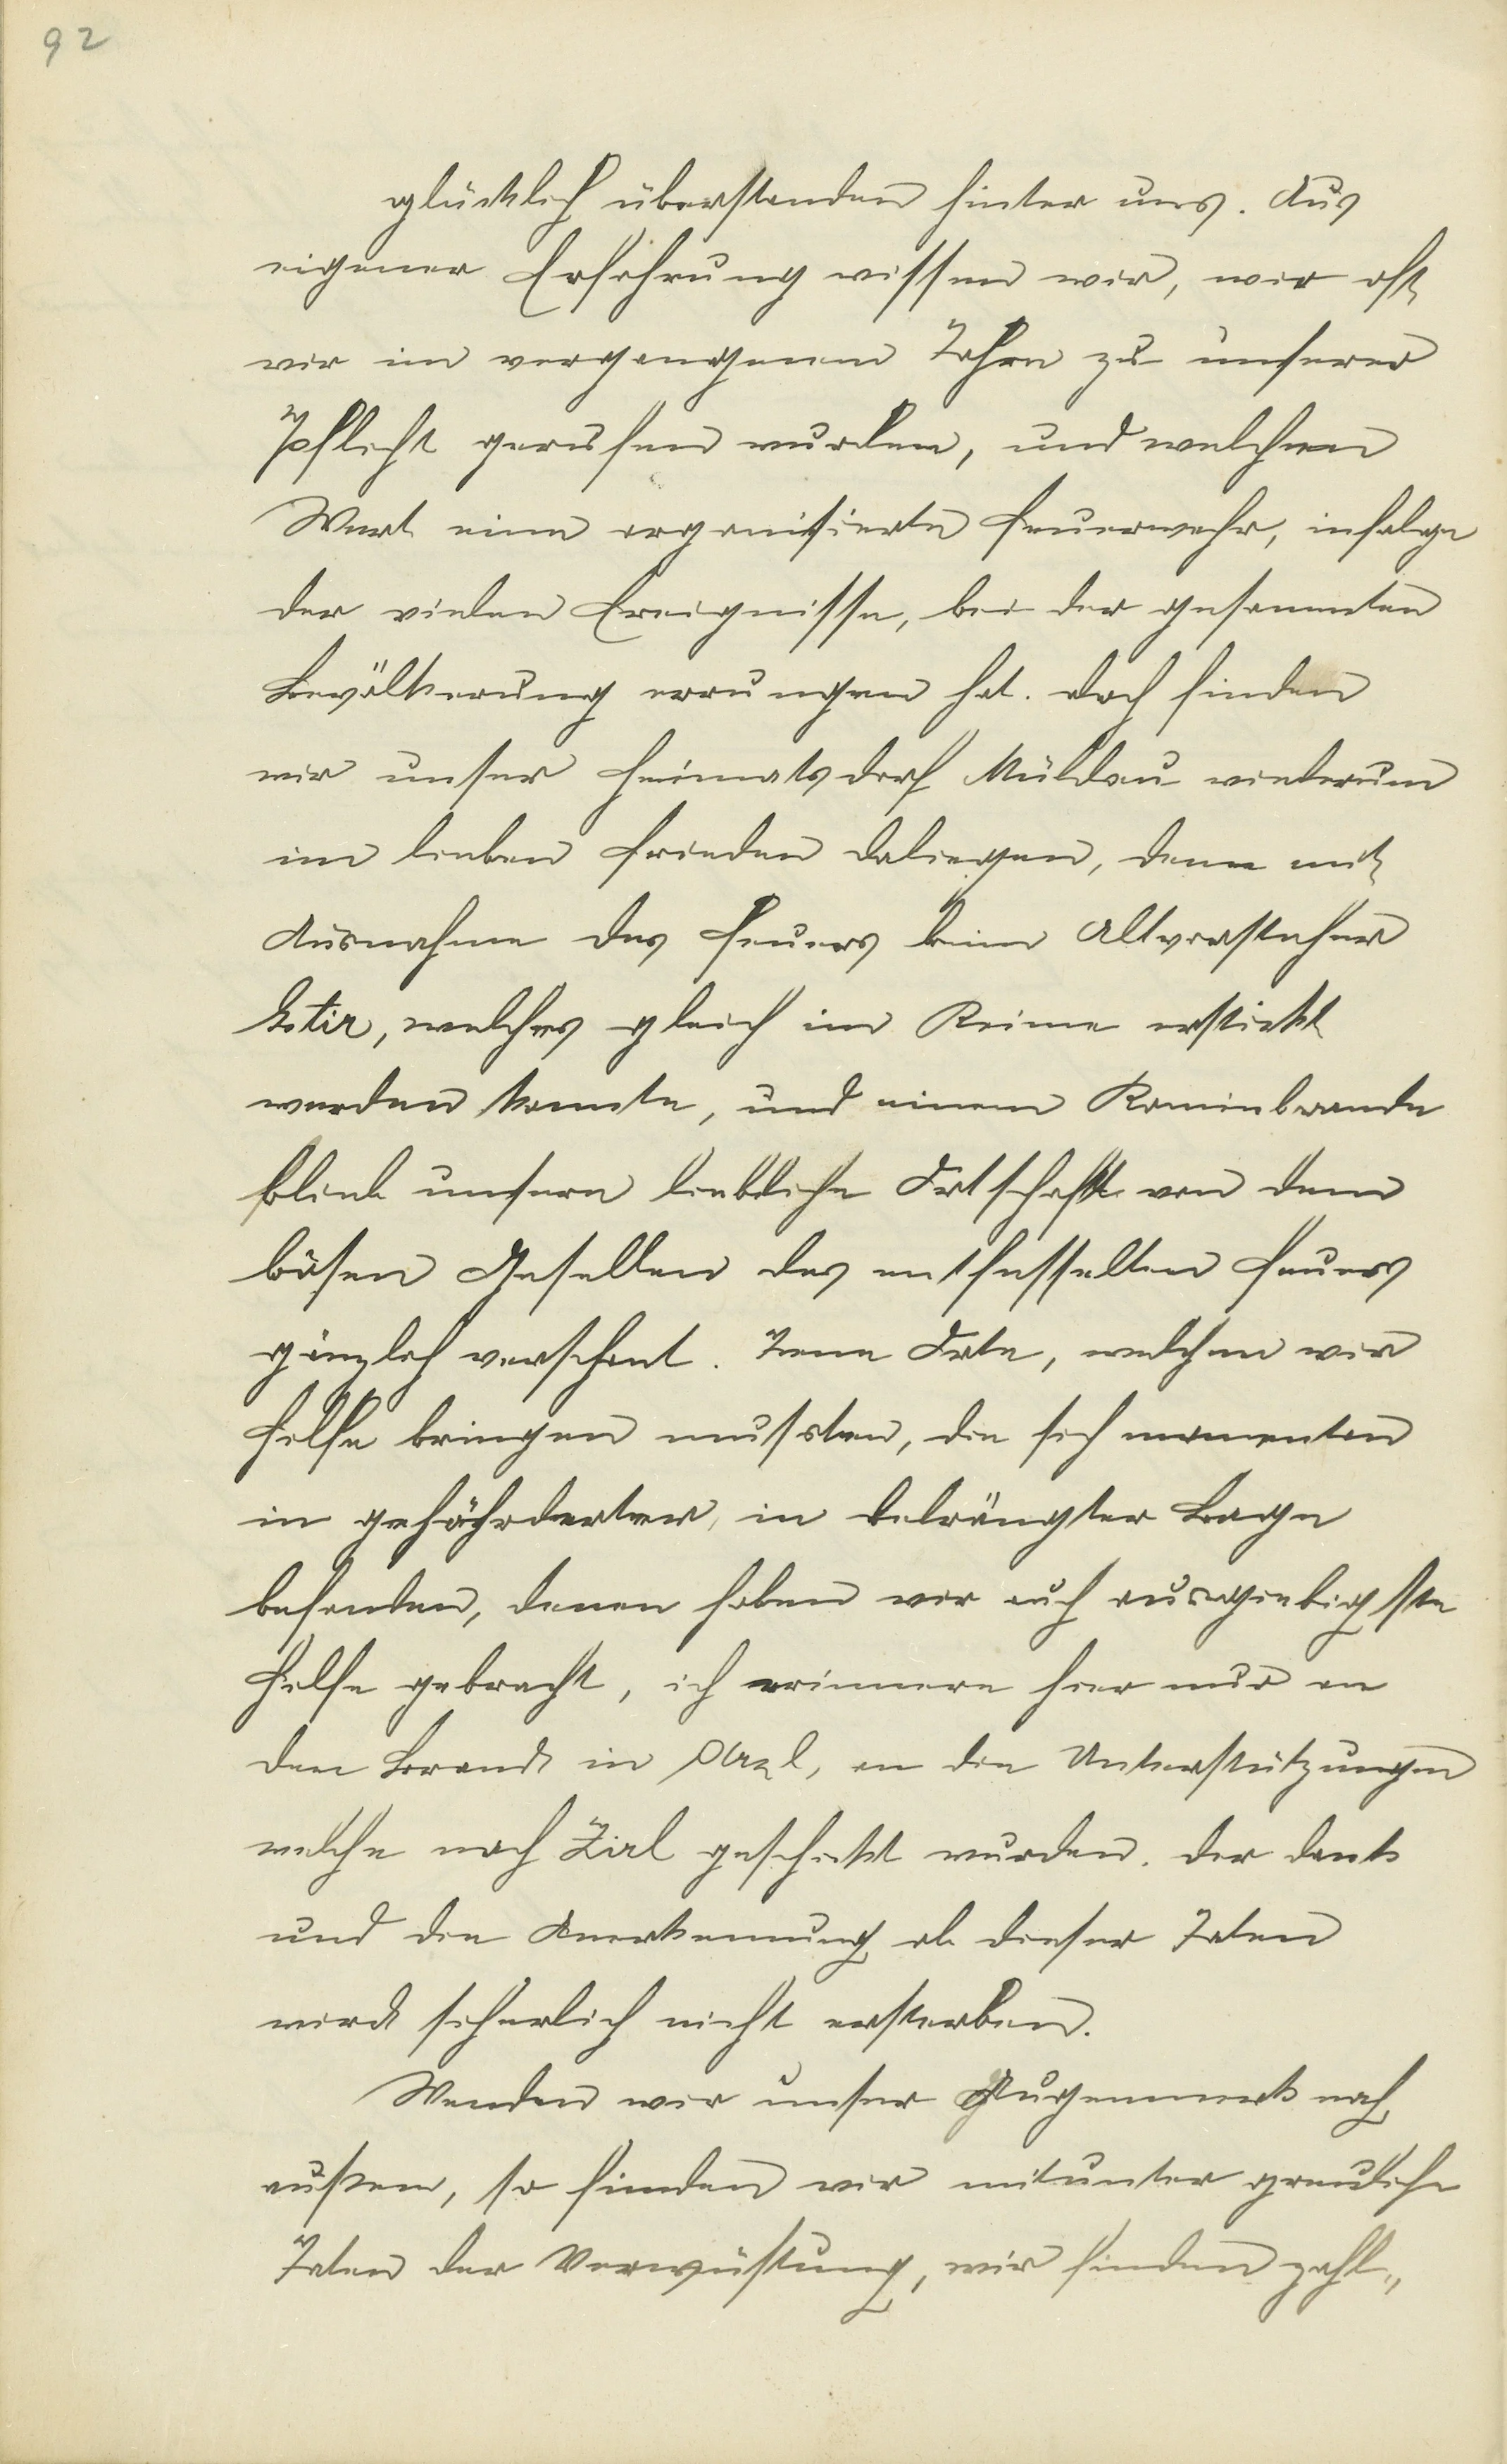 92
glücklich überstanden hinter uns. Aus
eigener Erfahrung wissen wir, wie oft
wir im vergangenen Jahre zu unserer
Pflicht gerufen wurden, und welchen
Wert eine organisierte Feuerwehr, infolge
der vielen Ereignisse, bei der gesammten
Bevölkerung errungen hat. Doch finden
wir unser Heimatsdorf Mühlau wiederum
im lieben Frieden daliegen, denn mit
Ausnahme des Feuers beim Altvorsteher
welches gleich im Keime erstickt
werden konnte, und einem Kaminbrande
blieb unsere liebliche Ortschaft von dem
bösen Gesellen des entfesselten Feuers
gänzlich verschont. Jene Orte, welchen wir
Hilfe bringen mussten, die sich momentan
in gefährdeter, in bedrängter Lage
befanden, denen haben wir auch ausgiebigste
Hilfe gebracht, ich erinnere hier nur an
den Brand in Arzl, an die Unterstützungen
welche nach Zirl geschickt wurden. Der Dank
und die Anerkennung ob dieser Taten
wird sicherlich nicht ersterben.
Wenden wir unser Augenmerk nach
außen, so finden wir mitunter greuliche
Taten der Verwüstung, wir finden zahl„